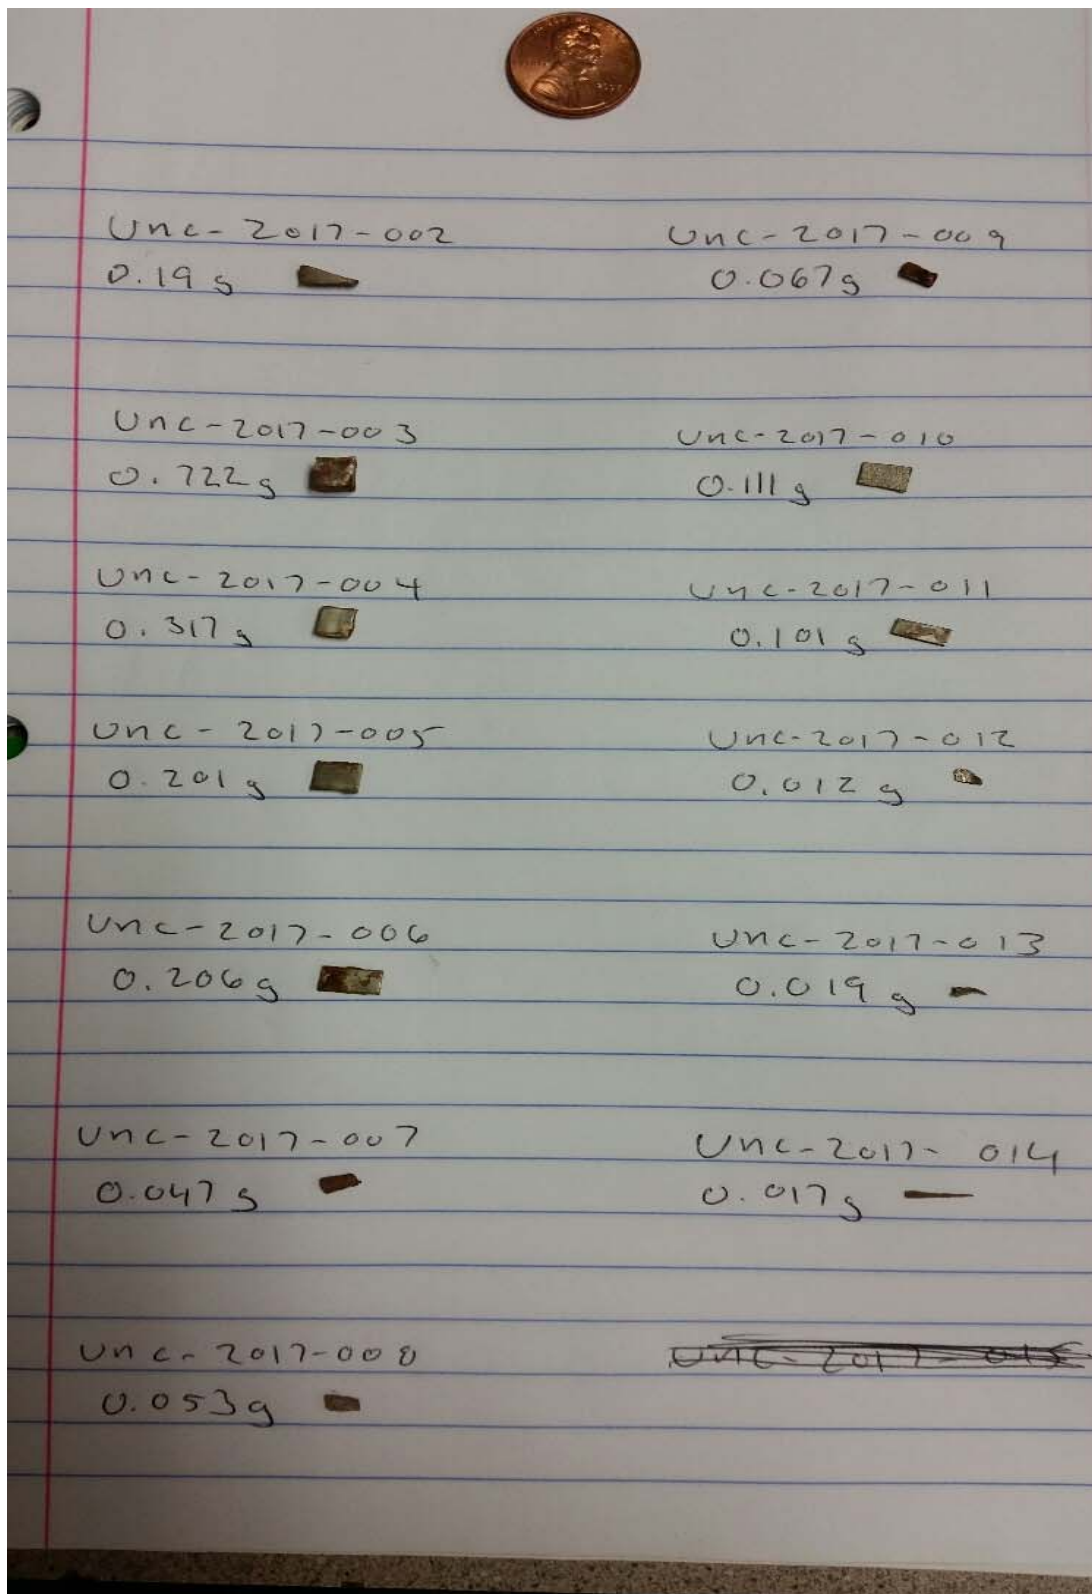 Unc-2017-002
0.19 g
Unc-2017-003
0.722 g
Unc-2017-004
0.317 g
Unc-2017-005
0.201 g
Unc-2017-006
0.206 g
Unc-2017-007
0.047 g
Unc-2017-008
0.053 g
Unc-2017-009
0.067 g
Unc-2017-010
0.111 g
Unc-2017-011
0.101 g
Unc-2017-012
0.012 g
Unc-2017-013
0.019 g
Unc-2017-014
0.017 g
Unc-2017-015